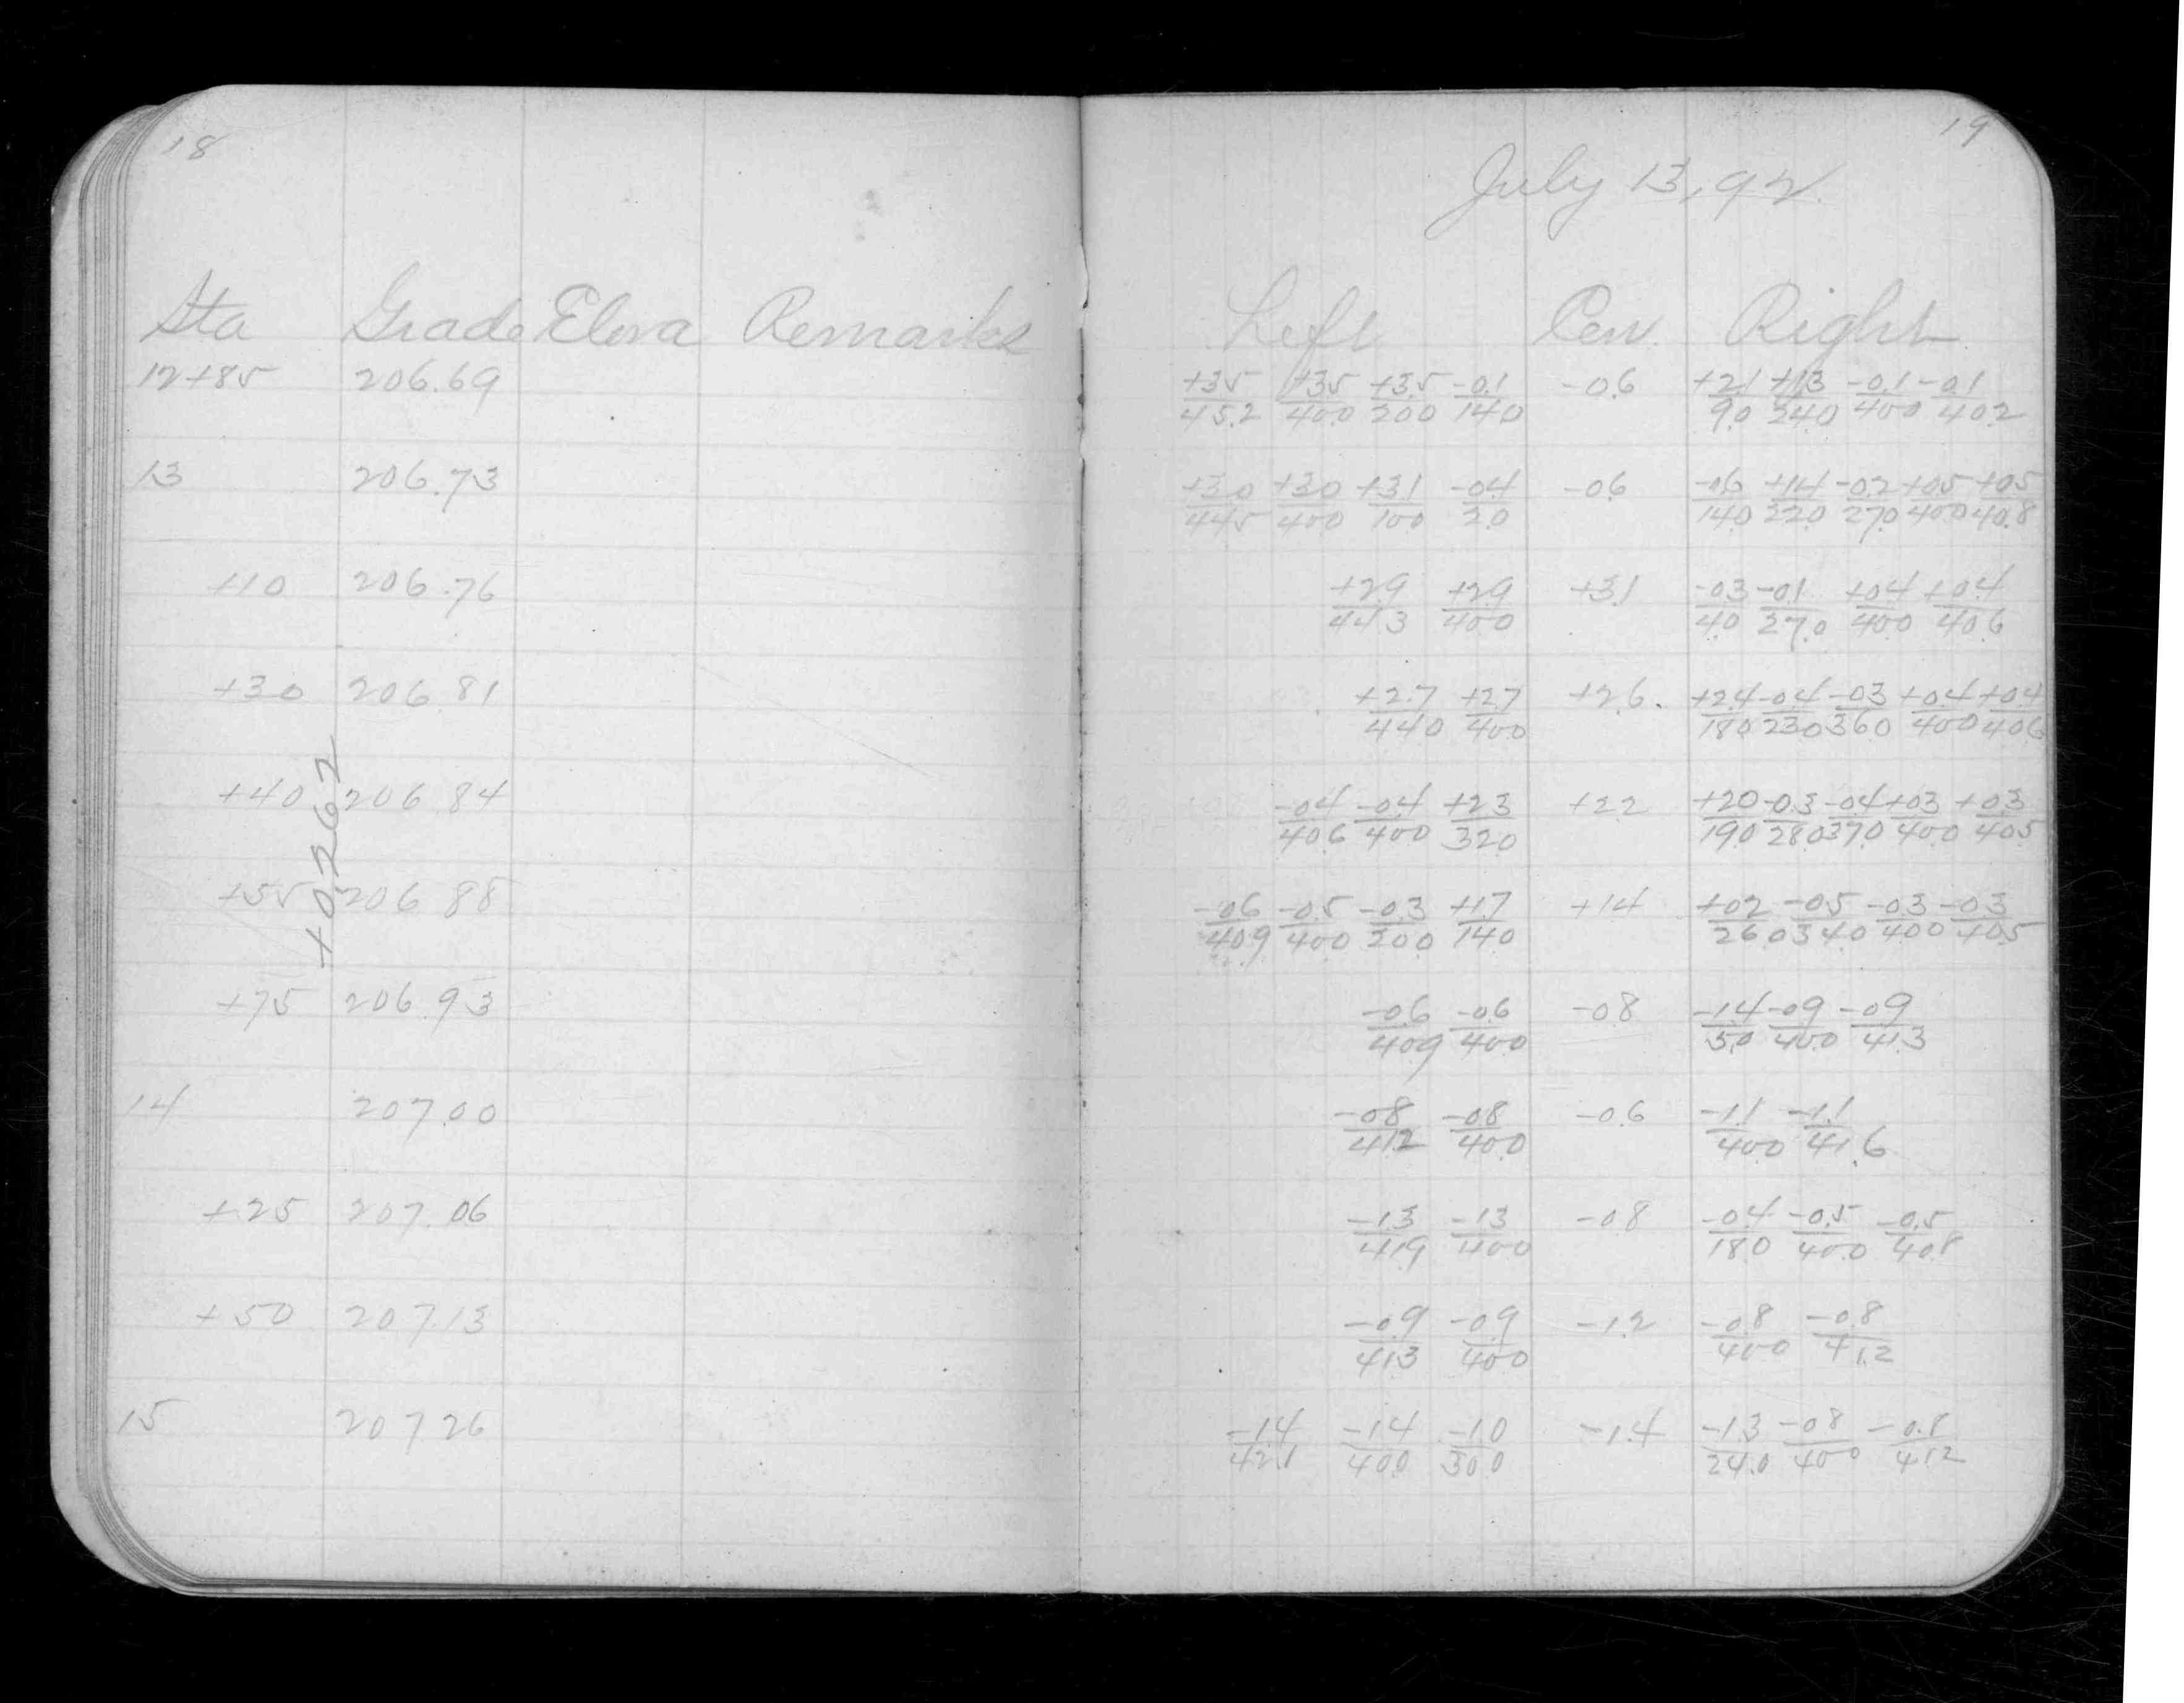 18
Sta Grade Eleva Remarks
12+85 206.69
13 206.73
+10 206.76
+30 206.81
+40 206.84
+55 206.88
+75 206.93
14 207.00
+25 207.06
+50 207.13
15 207 26
+0.262
19
July 13, 92.
Left Cen. Right
+3.5 +3.5 +3.5 -0.1 -0.6 +2.1 +1.3 -0.1 -0.1
45.2 40.0 20.0 14.0 9.0 24.0 40.0 40.2
+3.0 +3.0 +3.1 -0.4 -0.6 -0.6 +1.4 -0.2 +0.5 +0.5
44.5 40.0 10.0 2.0 14.0 22.0 27.0 40.0 40.8
+2.9 +2.9 +3.1 -0.3 -0.1 +0.4 +0.4
44.3 40.0 4.0 27.0 40.0 40.6
+2.7 +2.7 +2.6 +2.4 -0.4 -0.3 +0.4 +0.4
44.0 40.0 18.0 23.0 36.0 40.0 40.6
-0.4 -0.4 +2.3 +2.2 +2.0 -0.3 -0.4 +0.3 +0.3
40.6 40.0 32.0 19.0 28.0 37.0 40.0 40.5
-0.6 -0.5 -0.3 +1.7 +1.4 +0.2 -0.5 -0.3 -0.3
40.9 40.0 20.0 14.0 26.0 34.0 40.0 40.5
-0.6 -0.6 -0.8 -1.4 -0.9 -0.9
40.9 40.0 5.0 40.0 41.3
-0.8 -0.8 -0.6 -1.1 -1.1
41.2 40.0 40.0 41.6
-1.3 -1.3 -0.8 -0.4 -0.5 -0.5
41.9 40.0 18.0 40.0 40.8
-0.9 -0.9 -1.2 -0.8 -0.8
41.3 40.0 40.0 41.2
-1.4 -1.4 -1.0 -1.4 -1.3 -0.8 -0.8
42.1 40.0 30.0 24.0 40.0 41.2